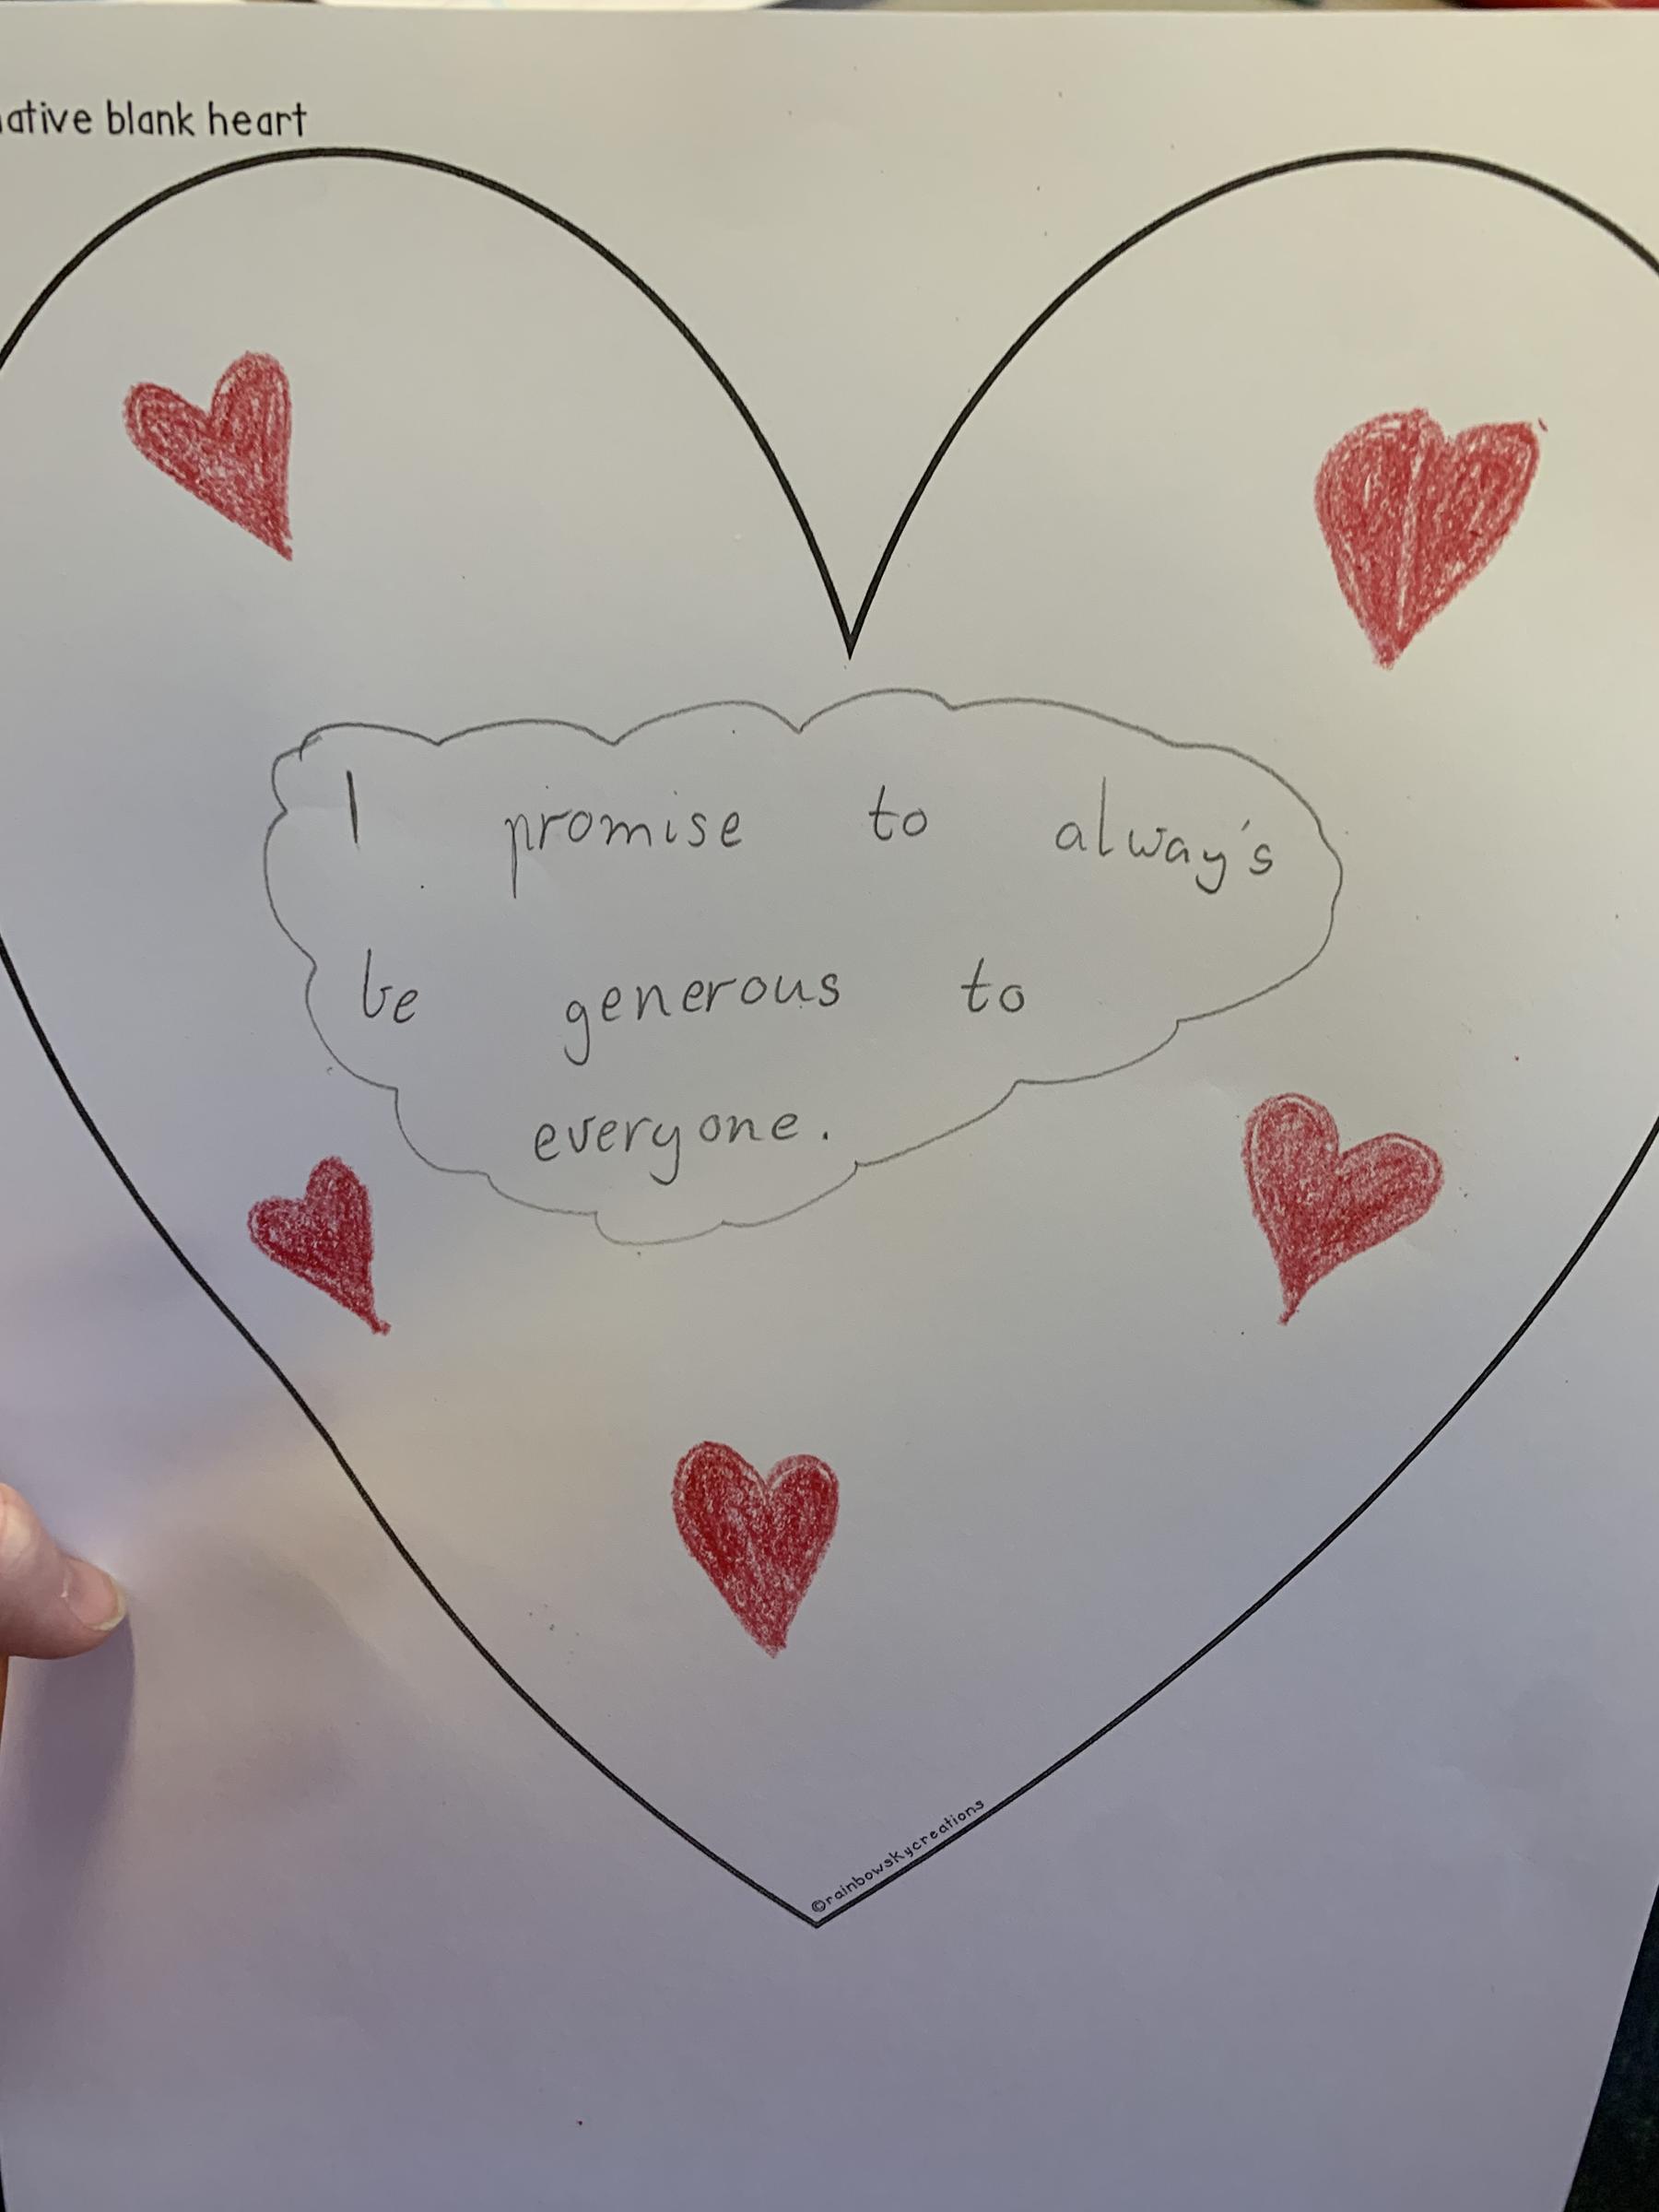 ative blank heart
I promise to alway's
be generous to
everyone.
©rainbowskycreations